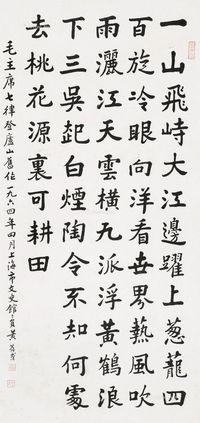 一山飛峙大江邊躍上葱蘢四
百旋冷眼向洋看世界熱風吹
雨灑江天雲橫九派浮黃鶴浪
下三吳起白煙陶令不知何處
去桃花源裏可耕田
毛主席七律登廬山舊作一九六四年四月上海市文史館員黃